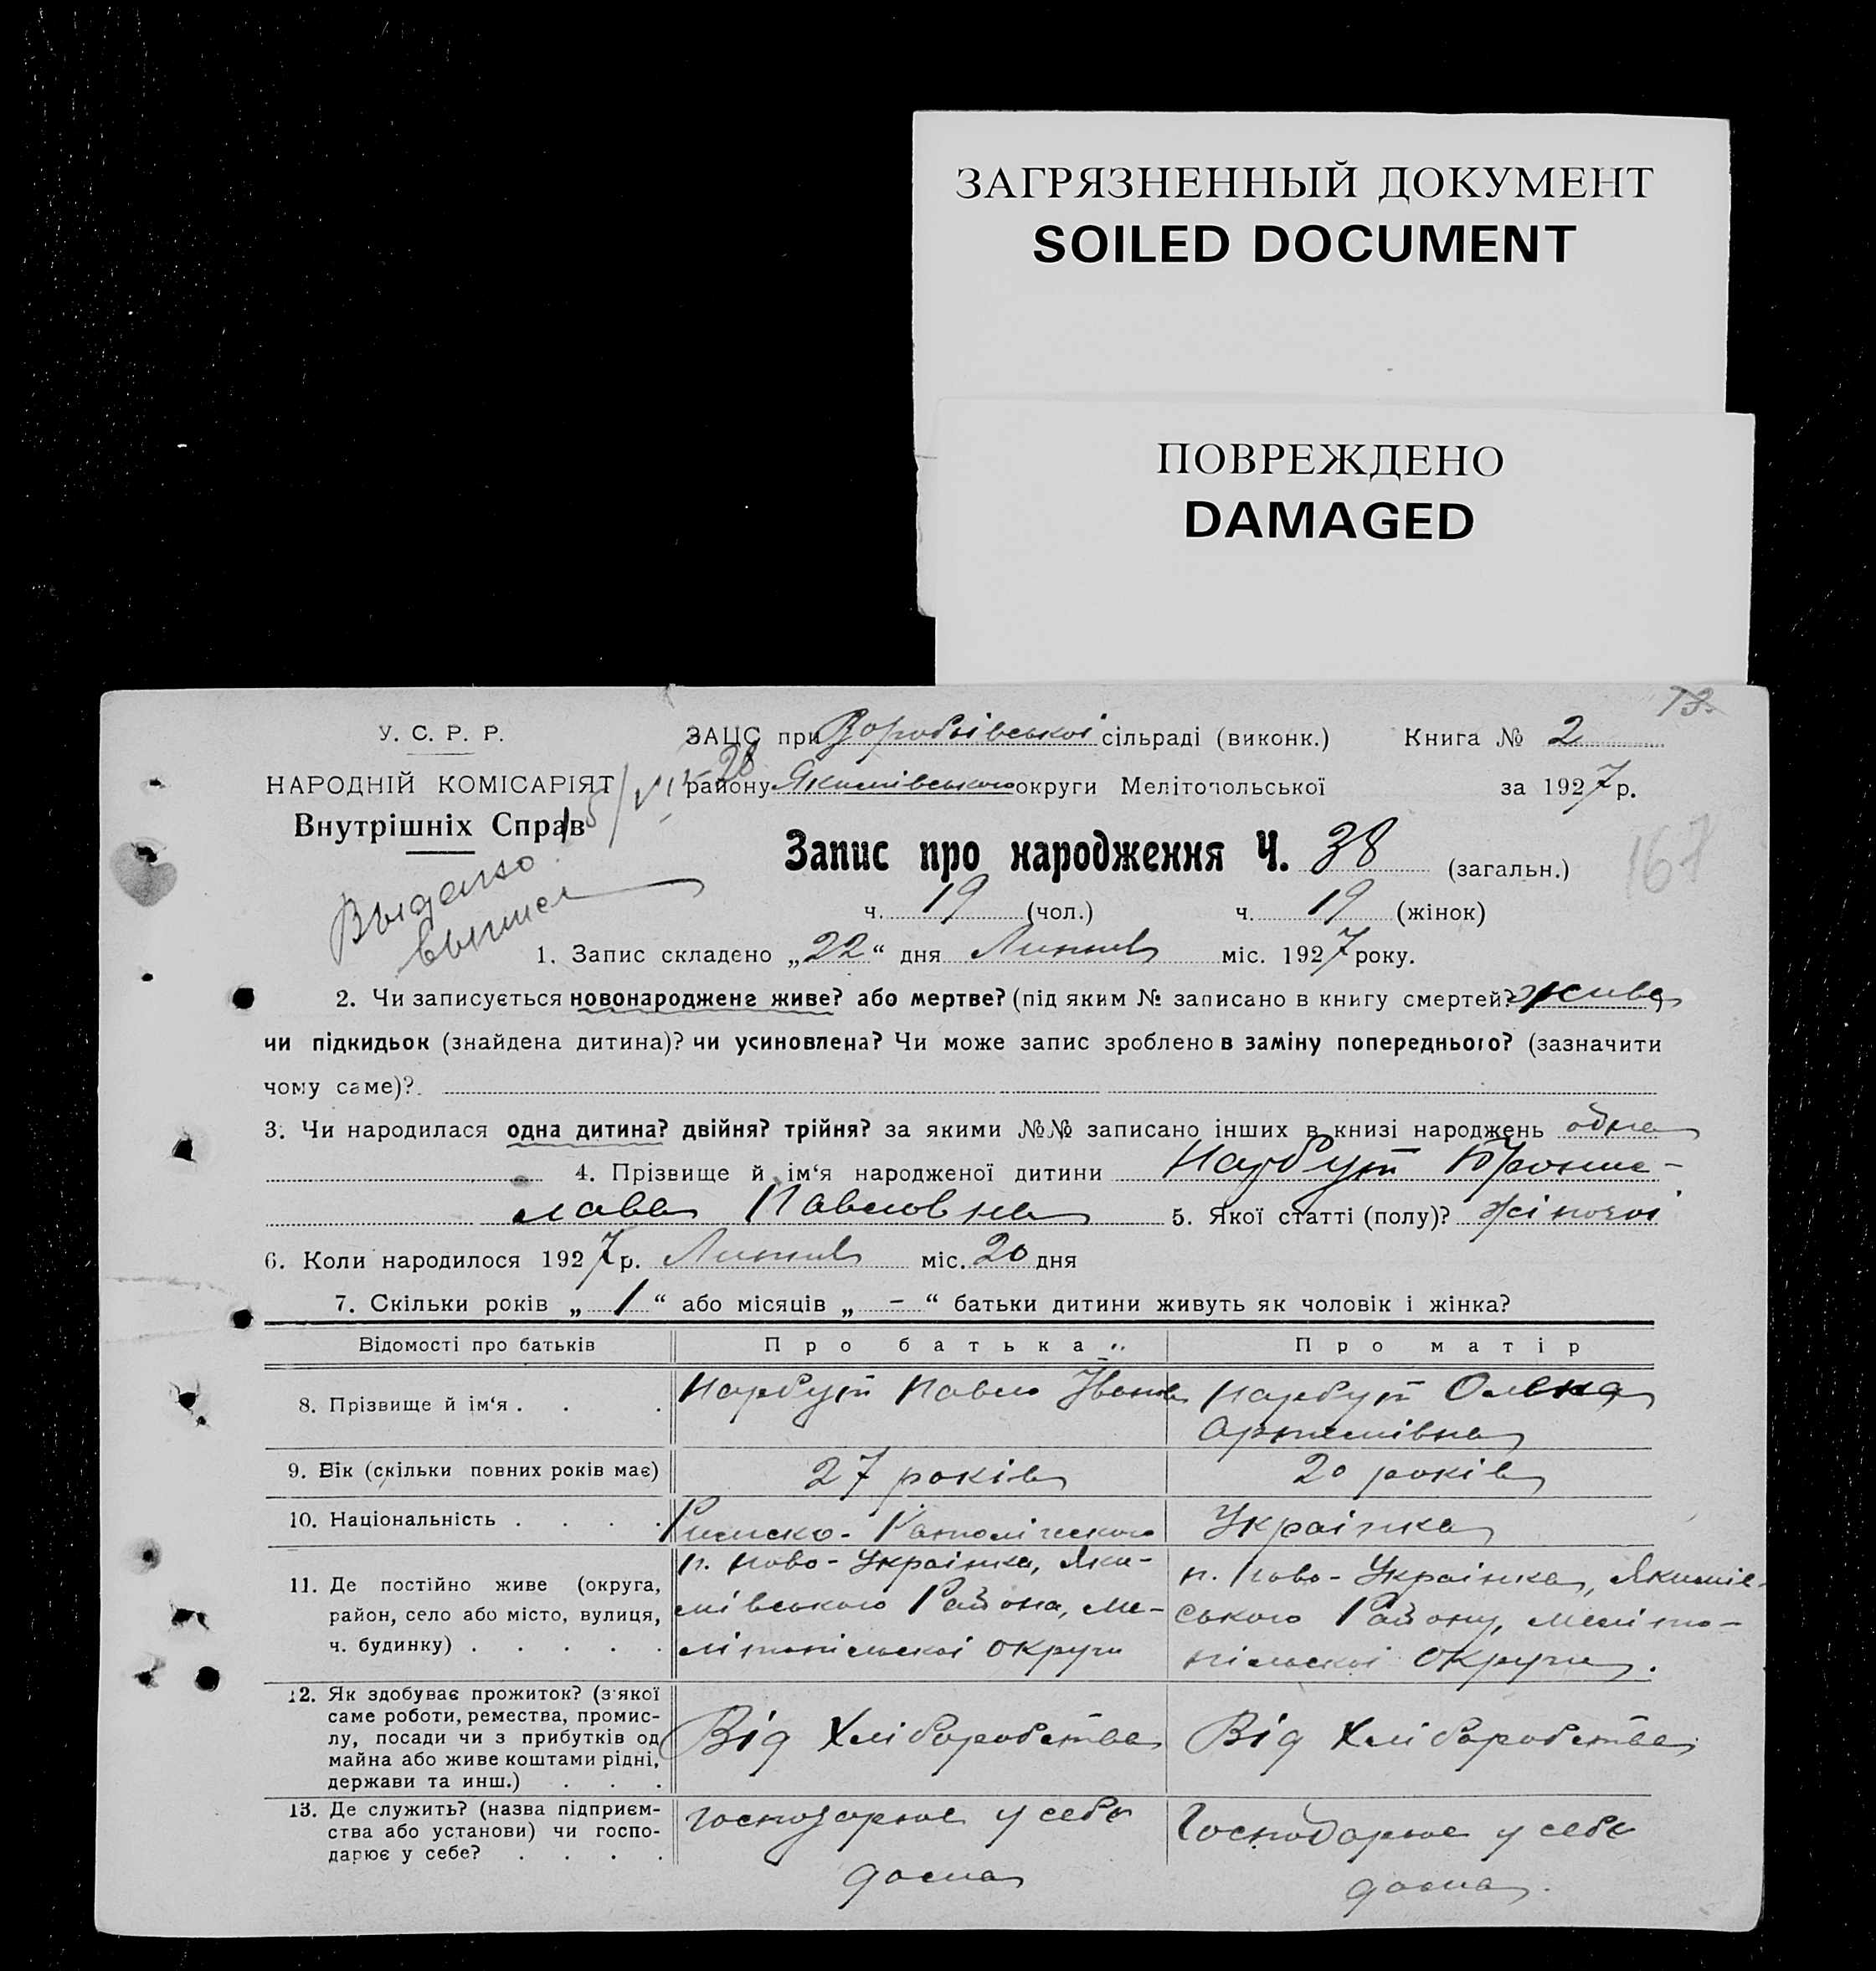 ЗАГРЯЗНЕННЫЙ ДОКУМЕНТ
SOILED DOCUMENT
ПОВРЕЖДЕНО
DAMAGED
73.
У. С. Р. Р.
ЗАЦС при Воробьівської сільраді (виконк.) Книга № 2
НАРОДНІЙ КОМІСАРІЯТ
району Якимівського округи Мелітопольської за 1927 р.
Внутрішніх Справ
Запис про народження Ч. 38 (загальн.)
167
ч. 19 (чол.) ч. 19 (жінок)
Выдано
1. Запис складено „22“ дня Липня міс. 1927 року.
2. Чи записується новонароджене живе? або мертве? (під яким № записано в книгу смертей? жива
чи підкидьок (знайдена дитина)? чи усиновлена? Чи може запис зроблено в заміну попереднього? (зазначити
чому саме)?
3. Чи народилася одна дитина? двійня? трійня? за якими №№ записано інших в книзі народжень одна
4. Прізвище й ім‘я народженої дитини Нарбут Брони-
лава Павловна 5. Якої статті (полу)? жіночої
6. Коли народилося 1927 р. Липня міс. 20 дня
7. Скільки років „ 1 “ або місяців „ - “ батьки дитини живуть як чоловік і жінка?
Відомості про батьків Про батька Про матір
8. Прізвище й ім‘я . . . Нарбут Павло Іванов Нарбут Олена
Артемівна
9. Вік (скільки повних років має) 27 років 20 років
10. Національність . . . . Римско-Католіческого Українка
11. Де постійно живе (округа, п. Ново-Українка, Яки- п. Ново-Українка, Якимів-
район, село або місто, вулиця, мівського Района, Ме- ського Району, Меліто-
ч. будинку) . . . . . літопільскої Округи пільскої Округи.
12. Як здобуває прожиток? (з'якої
саме роботи, ремества, промис-
лу, посади чи з прибутків од Від Хліборобства Від Хліборобства
майна або живе коштами рідні,
держави та инш.) . . .
13. Де служить? (назва підприєм- Господарює у себе Господарює у себе
ства або установи) чи госпо-
дарює у себе? . . . . дома дома.